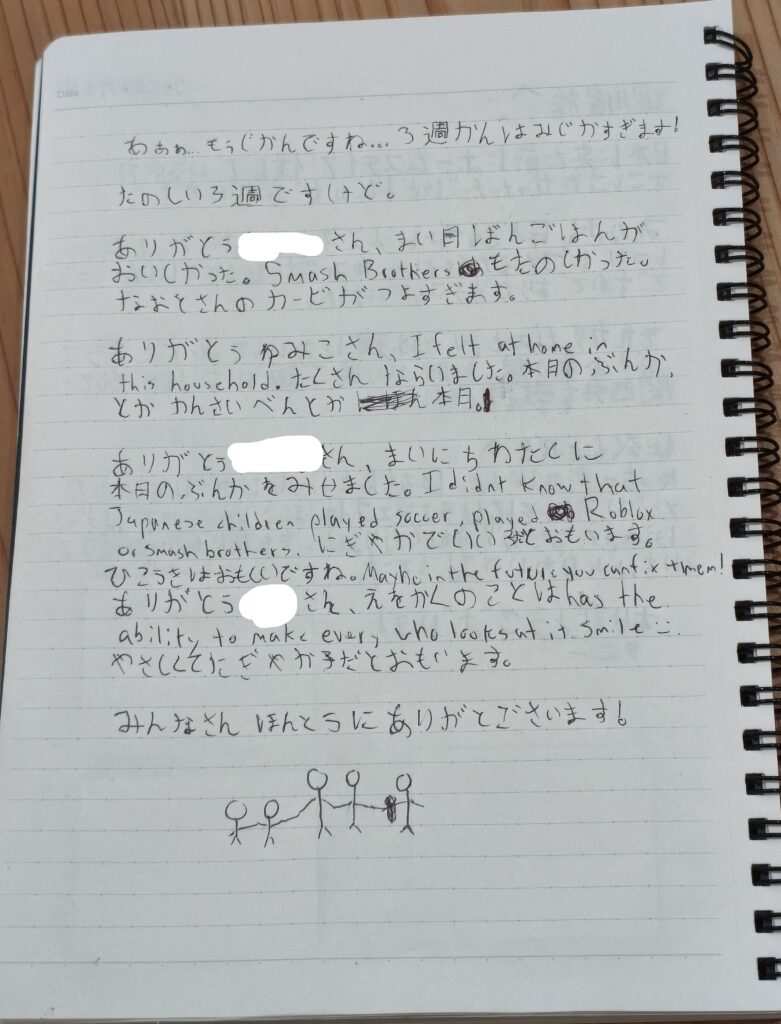 わぁぁ... もうじかんですね... 3週かんはみじかすぎます!
たのしい3週ですけど。
ありがとう さん、まい日ばんごはんが
おいしかった。Smash Brothers もたのしかった。
なおとさんのカービがつよすぎます。
ありがとうゆみこさん、I felt at home in
this household. たくさんならいました。本日のぶんか、
とかかんさいべんとか 本日。
ありがとう さん、まいにちわたくに
本日のぶんかをみせました。I didnt know that
Japanese children played soccer, played Roblox
or smash brothers. にぎやかでいい だとおもいます。
ひこうきはおもしいですね。Maybe in the future you can fix them!
ありがとう さん、えをかくのことは has the
ability to make every who looks at it smile
やさしくてにぎやか子だとおもいます。
みんなさんほんとうにありがとございます!